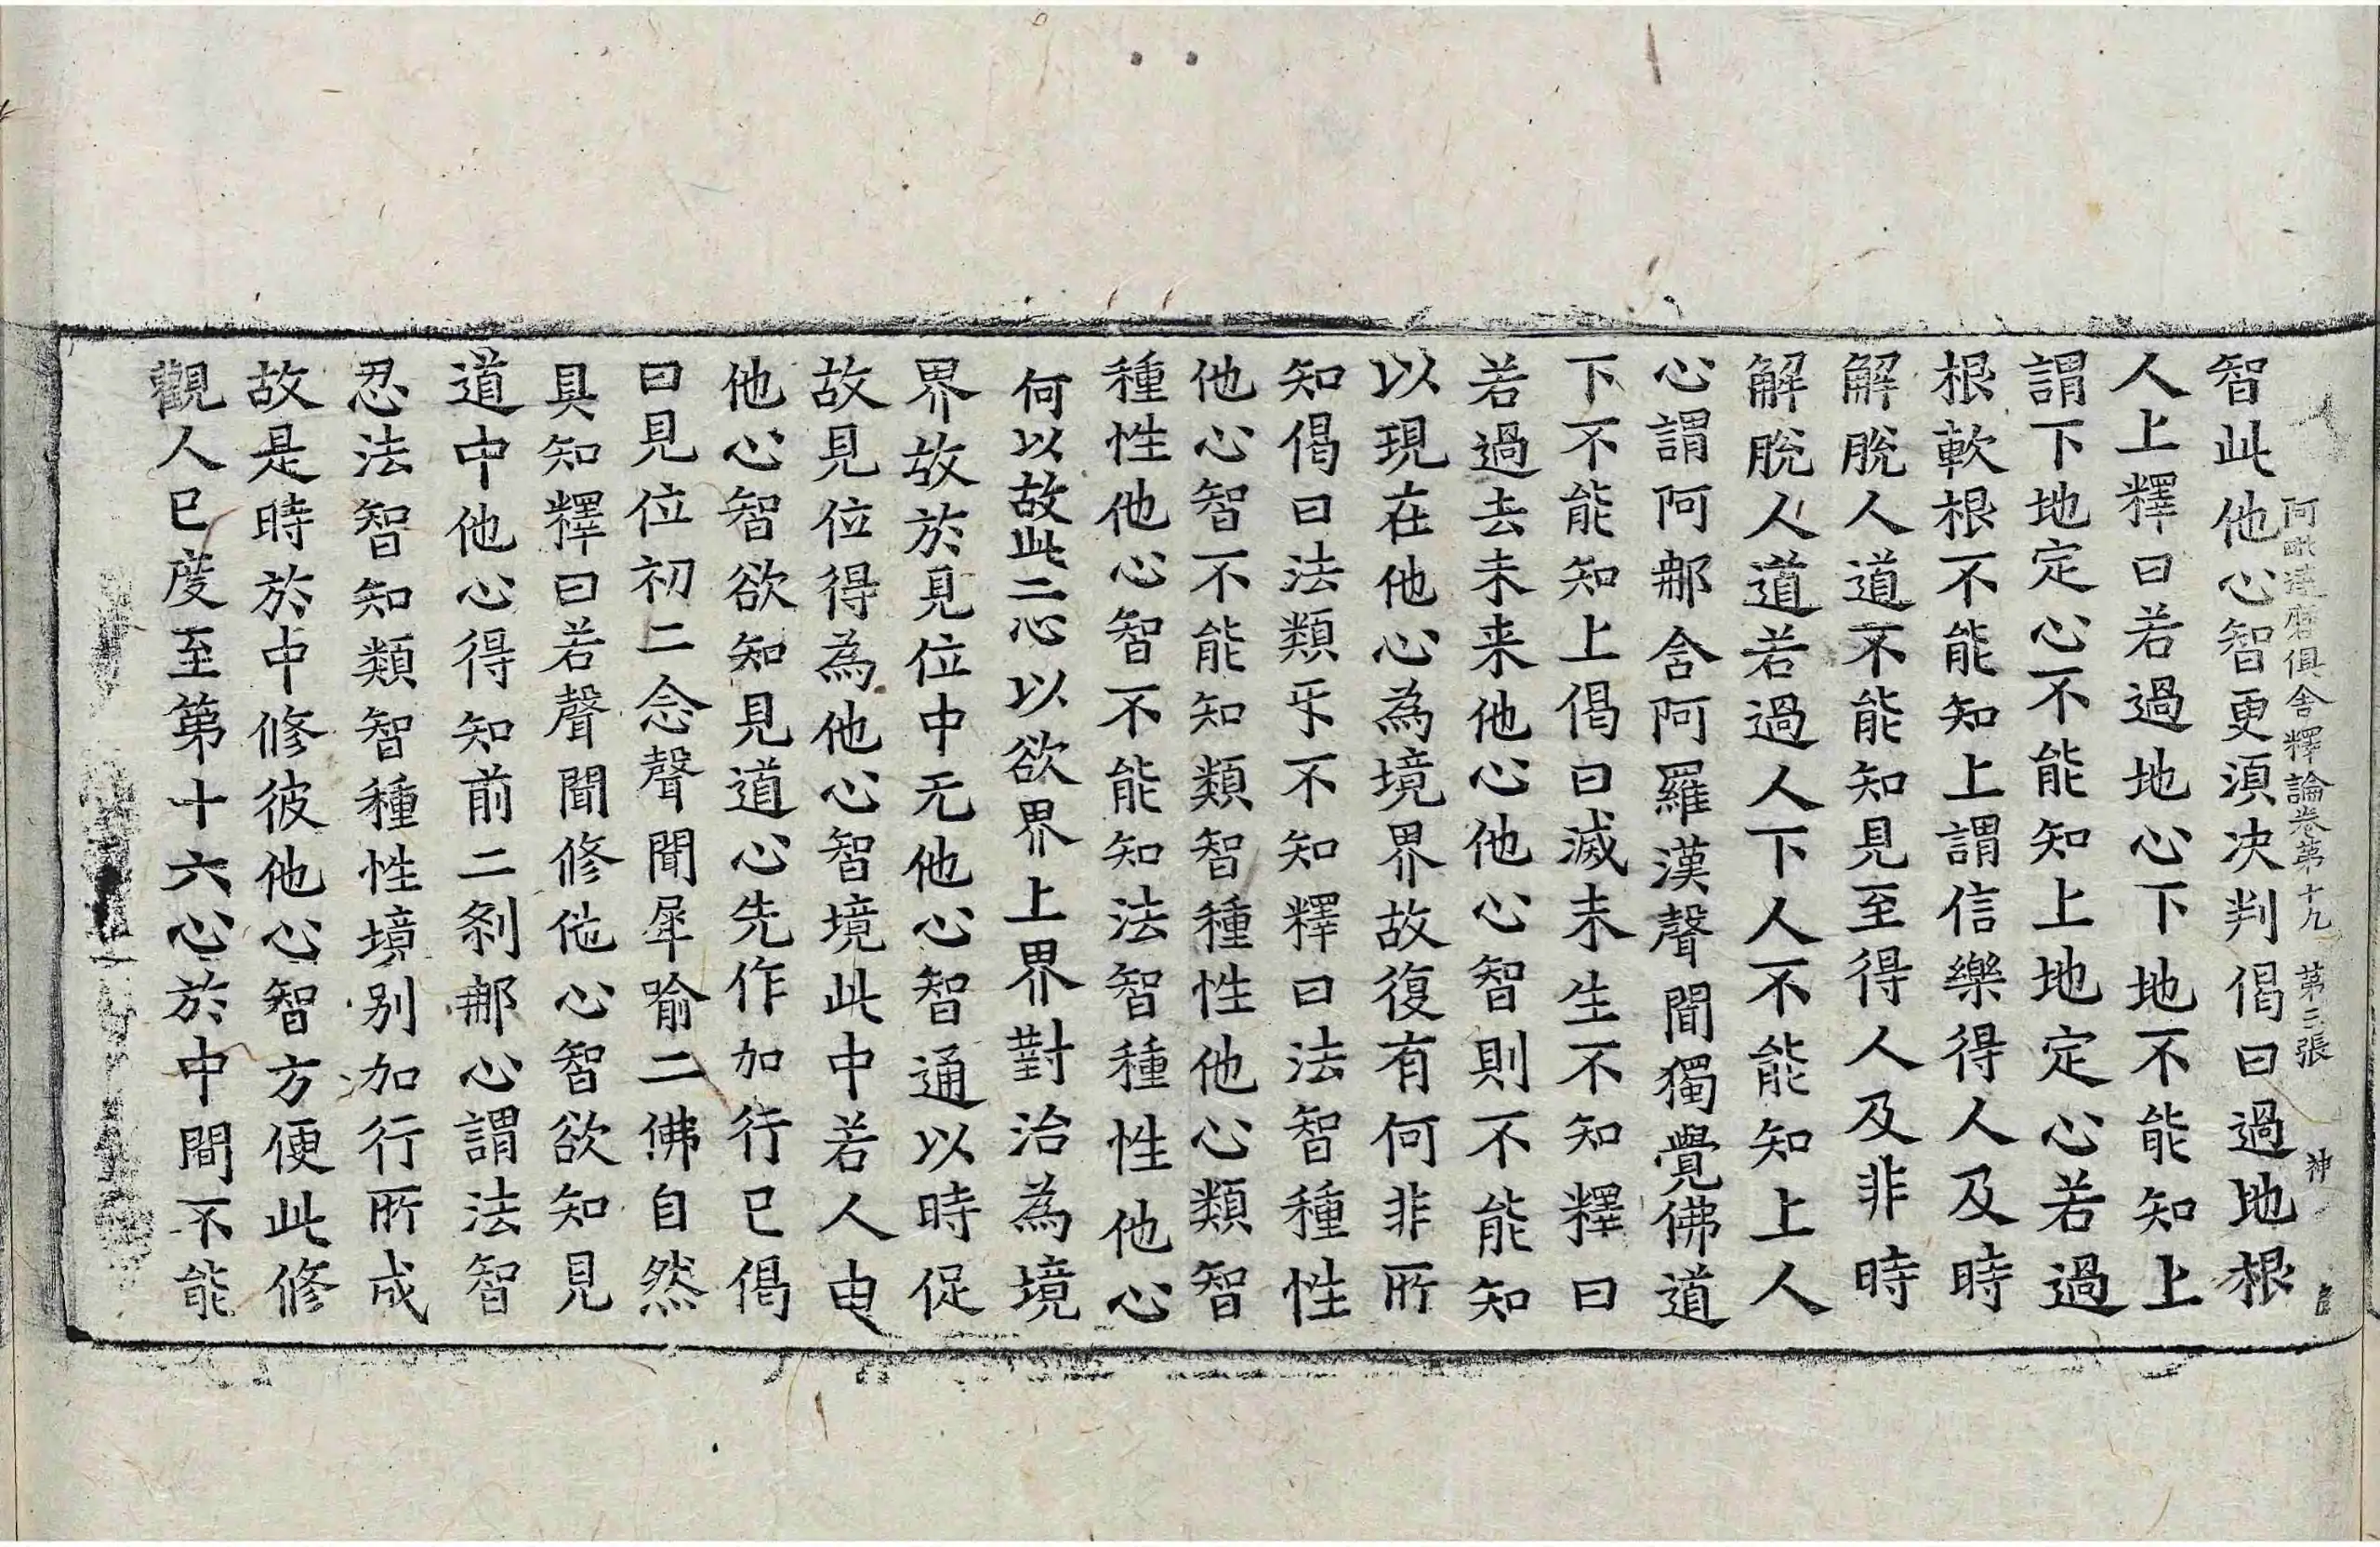 阿毗達磨俱舍釋論卷第十九 第三張 神
智此他心智更須决判偈曰過地根
人上釋曰若過地心下地不能知上
謂下地定心不能知上地定心若過
根軟根不能知上謂信樂得人及時
解脫人道不能知見至得人及非時
解脫人道若過人下人不能知上人
心謂阿那含阿羅漢聲聞獨覺佛道
下不能知上偈曰滅未生不知釋曰
若過去未来他心他心智則不能知
以現在他心為境界故復有何非所
知偈曰法類㸦不知釋曰法智種性
他心智不能知類智種性他心類智
種性他心智不能知法智種性他心
何以故此二心以欲界上界對治為境
界故於見位中无他心智通以時促
故見位得為他心智境此中若人由
他心智欲知見道心先作加行已偈
曰見位初二念聲聞犀喻二佛自然
具知釋曰若聲聞修他心智欲知見
道中他心得知前二剎那心謂法智
忍法智知類智種性境别加行所成
故是時於中修彼他心智方便此修
觀人已度至第十六心於中間不能